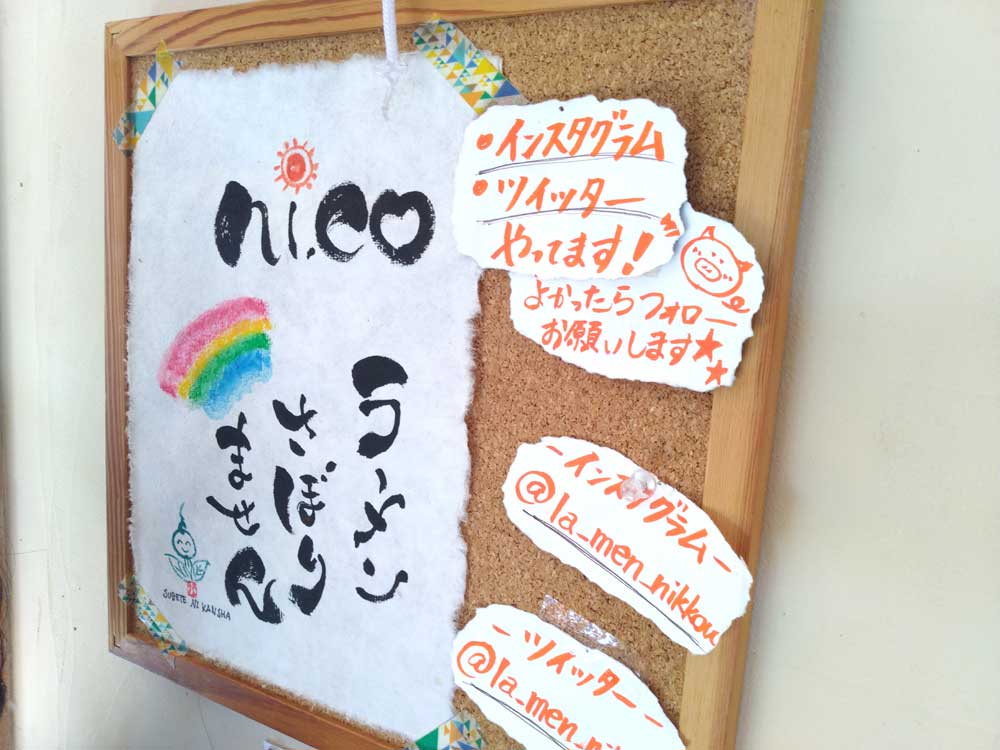 ni.co
ラーメン
さぼり
ません
SUBETE NI KANSHA
・インスタグラム
・ツイッター
やってます!
よかったらフォロー
お願いします★★
-インスタグラム-
@la_men_nikkou
-ツイッター-
@la_men_ni